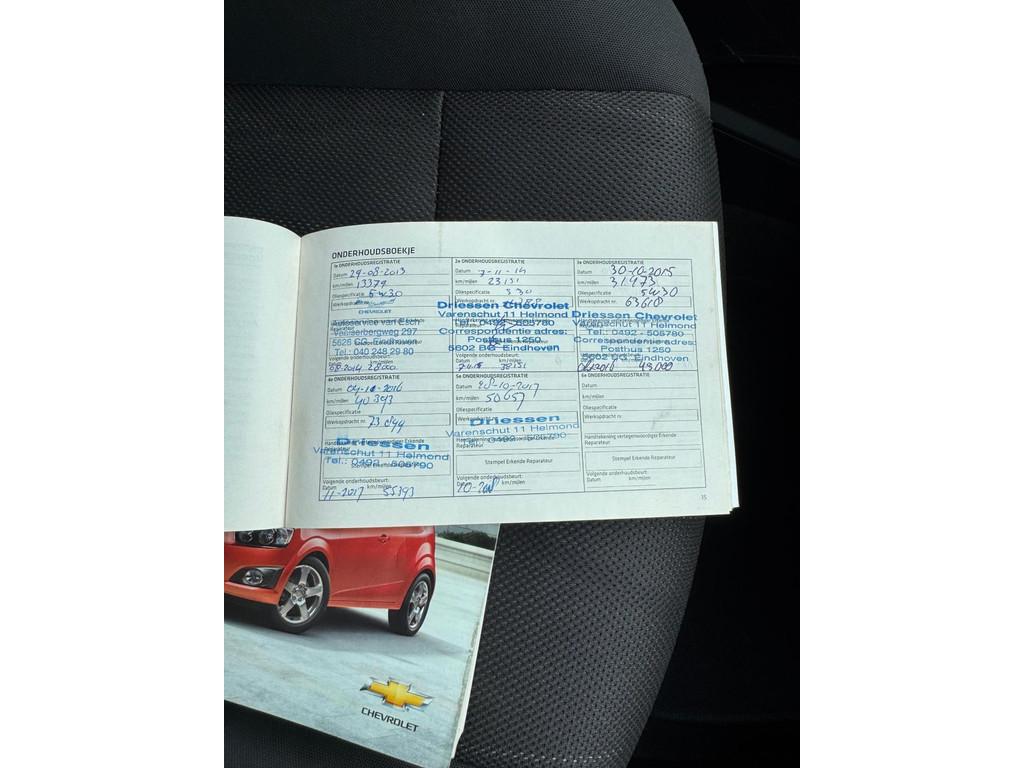 ONDERHOUDSBOEKJE
1e ONDERHOUDSREGISTRATIE
Datum 29-08-2013
km/mijlen 13379
Oliespecificatie 5w30
Werkopdracht nr.
CHEVROLET
Autoservice van Esch
297
5628 GG Eindhoven
Tel.: 040 248 29 80
Volgende onderhoudsbeurt:
Datum km/mijlen
08-2014 28000
2e ONDERHOUDSREGISTRATIE
Datum 7-11-14
km/mijlen 23151
Oliespecificatie 530
Werkopdracht nr.
Driessen Chevrolet
Varenschut 11 Helmond
Tel.: 0492 - 505780
Correspondentie adres:
Postbus 1250
5602 BG Eindhoven
Volgende onderhoudsbeurt:
Datum km/mijlen
7-11-15 38151
3e ONDERHOUDSREGISTRATIE
Datum 30-10-2015
km/mijlen 31.973
Oliespecificatie 5w30
Werkopdracht nr. 63618
Driessen Chevrolet
Varenschut 11 Helmond
Tel.: 0492 - 505780
Correspondentie adres:
Postbus 1250
5602 BG Eindhoven
Datum km/mijlen
43.000
4e ONDERHOUDSREGISTRATIE
Datum 04-11-2016
km/mijlen 40393
Oliespecificatie
Werkopdracht nr.
Handtekening vertegenwoordiger Erkende
Reparateur
Driessen
Varenschut 11 Helmond
Tel.: 0492 - 505790
Stempel Erkende Reparateur
Volgende onderhoudsbeurt:
Datum km/mijlen
11-2017 55393
5e ONDERHOUDSREGISTRATIE
Datum 28-10-2017
km/mijlen 50657
Oliespecificatie
Werkopdracht nr.
Driessen
Varenschut 11 Helmond
Tel.: 0492 - 505790
Handtekening vertegenwoordiger Erkende
Reparateur
Stempel Erkende Reparateur
Volgende onderhoudsbeurt:
Datum km/mijlen
10-2018
6e ONDERHOUDSREGISTRATIE
Datum
km/mijlen
Oliespecificatie
Werkopdracht nr.
Handtekening vertegenwoordiger Erkende
Reparateur
Stempel Erkende Reparateur
Volgende onderhoudsbeurt:
Datum km/mijlen
15
CHEVROLET